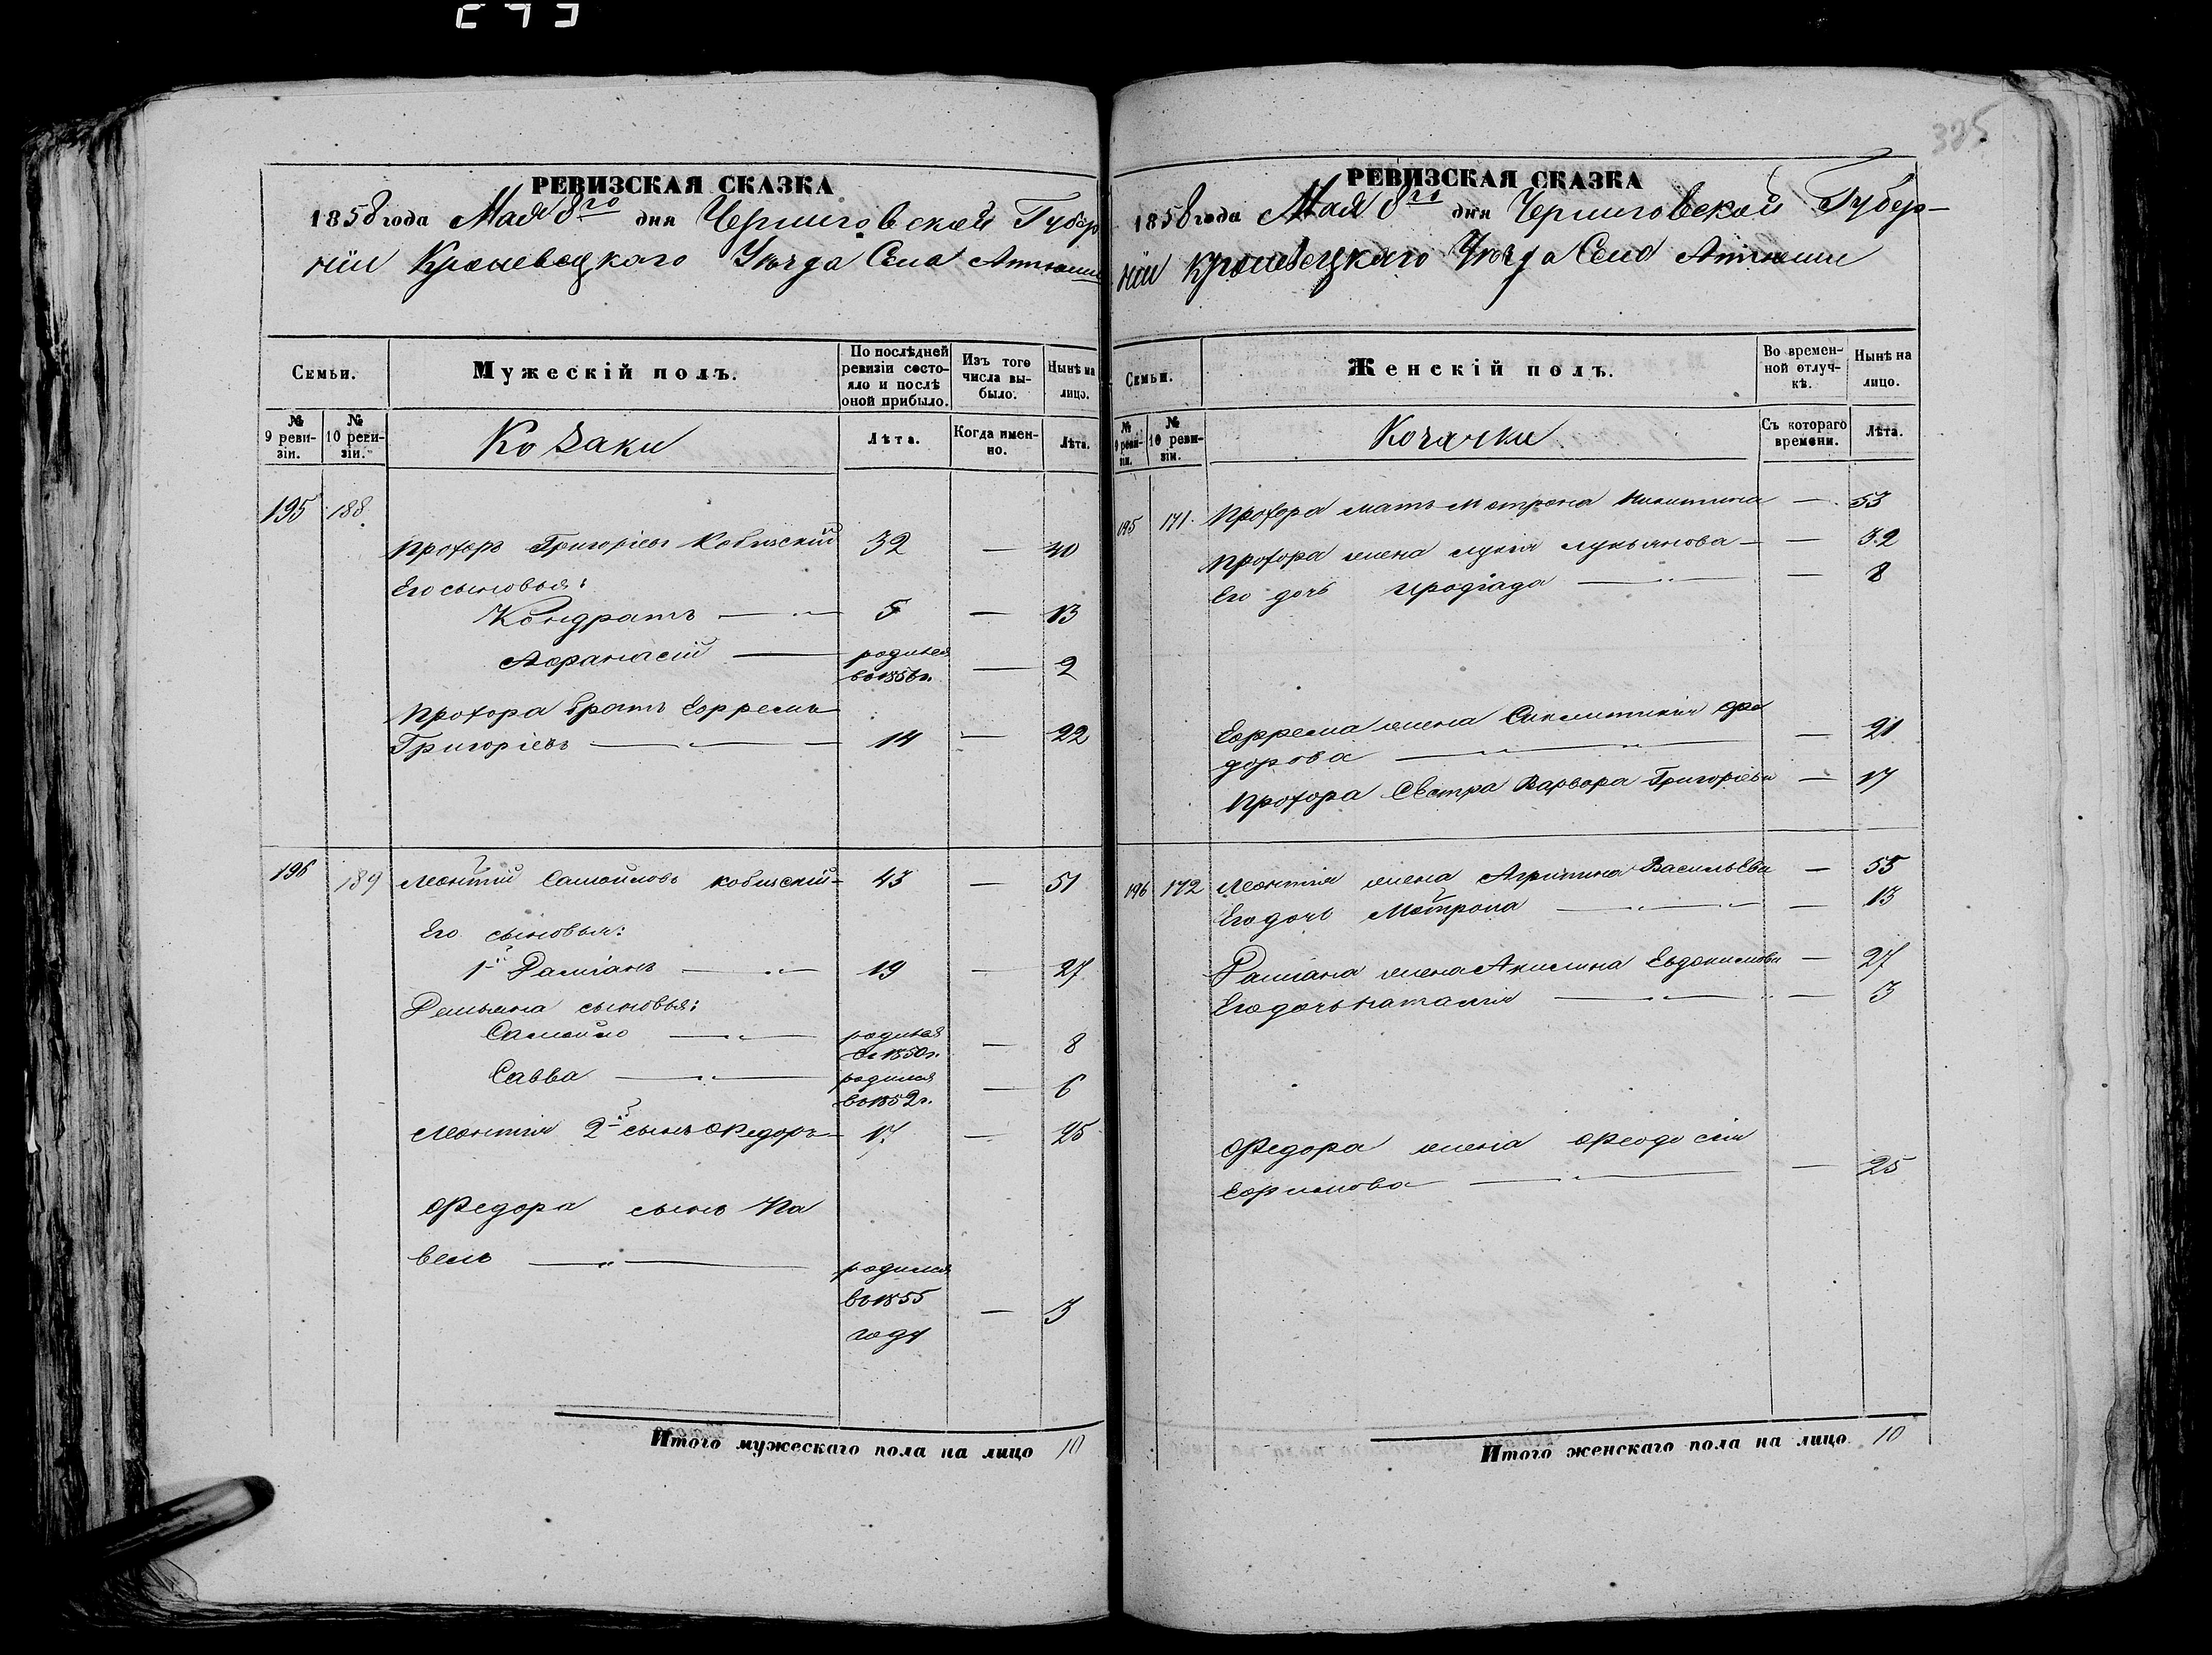 325
РЕВИЗСКАЯ СКАЗКА
1858 года Мая 8го дня Черниговской Губер
ніи Кролевецкаго Уѣзда Села Аттюши
Семьи.
Мужескій полъ.
По послѣдней ревизіи состояло и послѣ оной прибыло.
Изъ того числа выбыло.
Нынѣ на лицо.
№ 9 ревизіи.
№ 10 ревизіи.
Козаки
Лѣта.
Когда именно.
Лѣта.
195 188
Прохоръ Григоріевъ Кобизскій 32 — 40
Его сыновья:
Кондратъ — 5 — 13
Афанасій — родился
въ 1856 г. — 2
Прохора братъ Ефремъ
Григоріевъ — 14 — 22
196 189 Леонтій Самойловъ Кобизскій 43 — 51
Его сыновья:
1й Даміанъ — 19 — 27
Демьяна сыновья:
Самойло — родился
въ 1850 г. — 8
Савва — родился
въ 1852 г. — 6
Леонтія 2й сынъ Федоръ 17 — 25
Федора сынъ Па
велъ — родился
въ 1855
году — 3
Итого мужескаго пола на лицо 10
РЕВИЗСКАЯ СКАЗКА
1858 года Мая 8го дня Черниговской Губер-
ніи Кролевецкаго Уѣзда Села Аттюши
Семьи.
Женскій полъ.
Во временной отлучкѣ.
Нынѣ на лицо.
№ 9 ревизіи.
№ 10 ревизіи.
Козачки
Съ котораго времени.
Лѣта.
195 171. Прохора мать Мотрона Никитина — 53
Прохора жена Лукія Лукьянова — — 32
Его дочь Иродіада — — 8
Ефрема жена Синклитикія Фе
дорова — — 21
Прохора Сестра Варвара Григоріева — 17
196 172 Леонтія жена Агрипина Васильева — 55
Его дочь Мотрона — — 13
Даміана жена Акилина Евдокимова — 27
Его дочь Наталія — — 3
Федора жена Феодосія
Ефимова — — 25
Итого женскаго пола на лицо 10